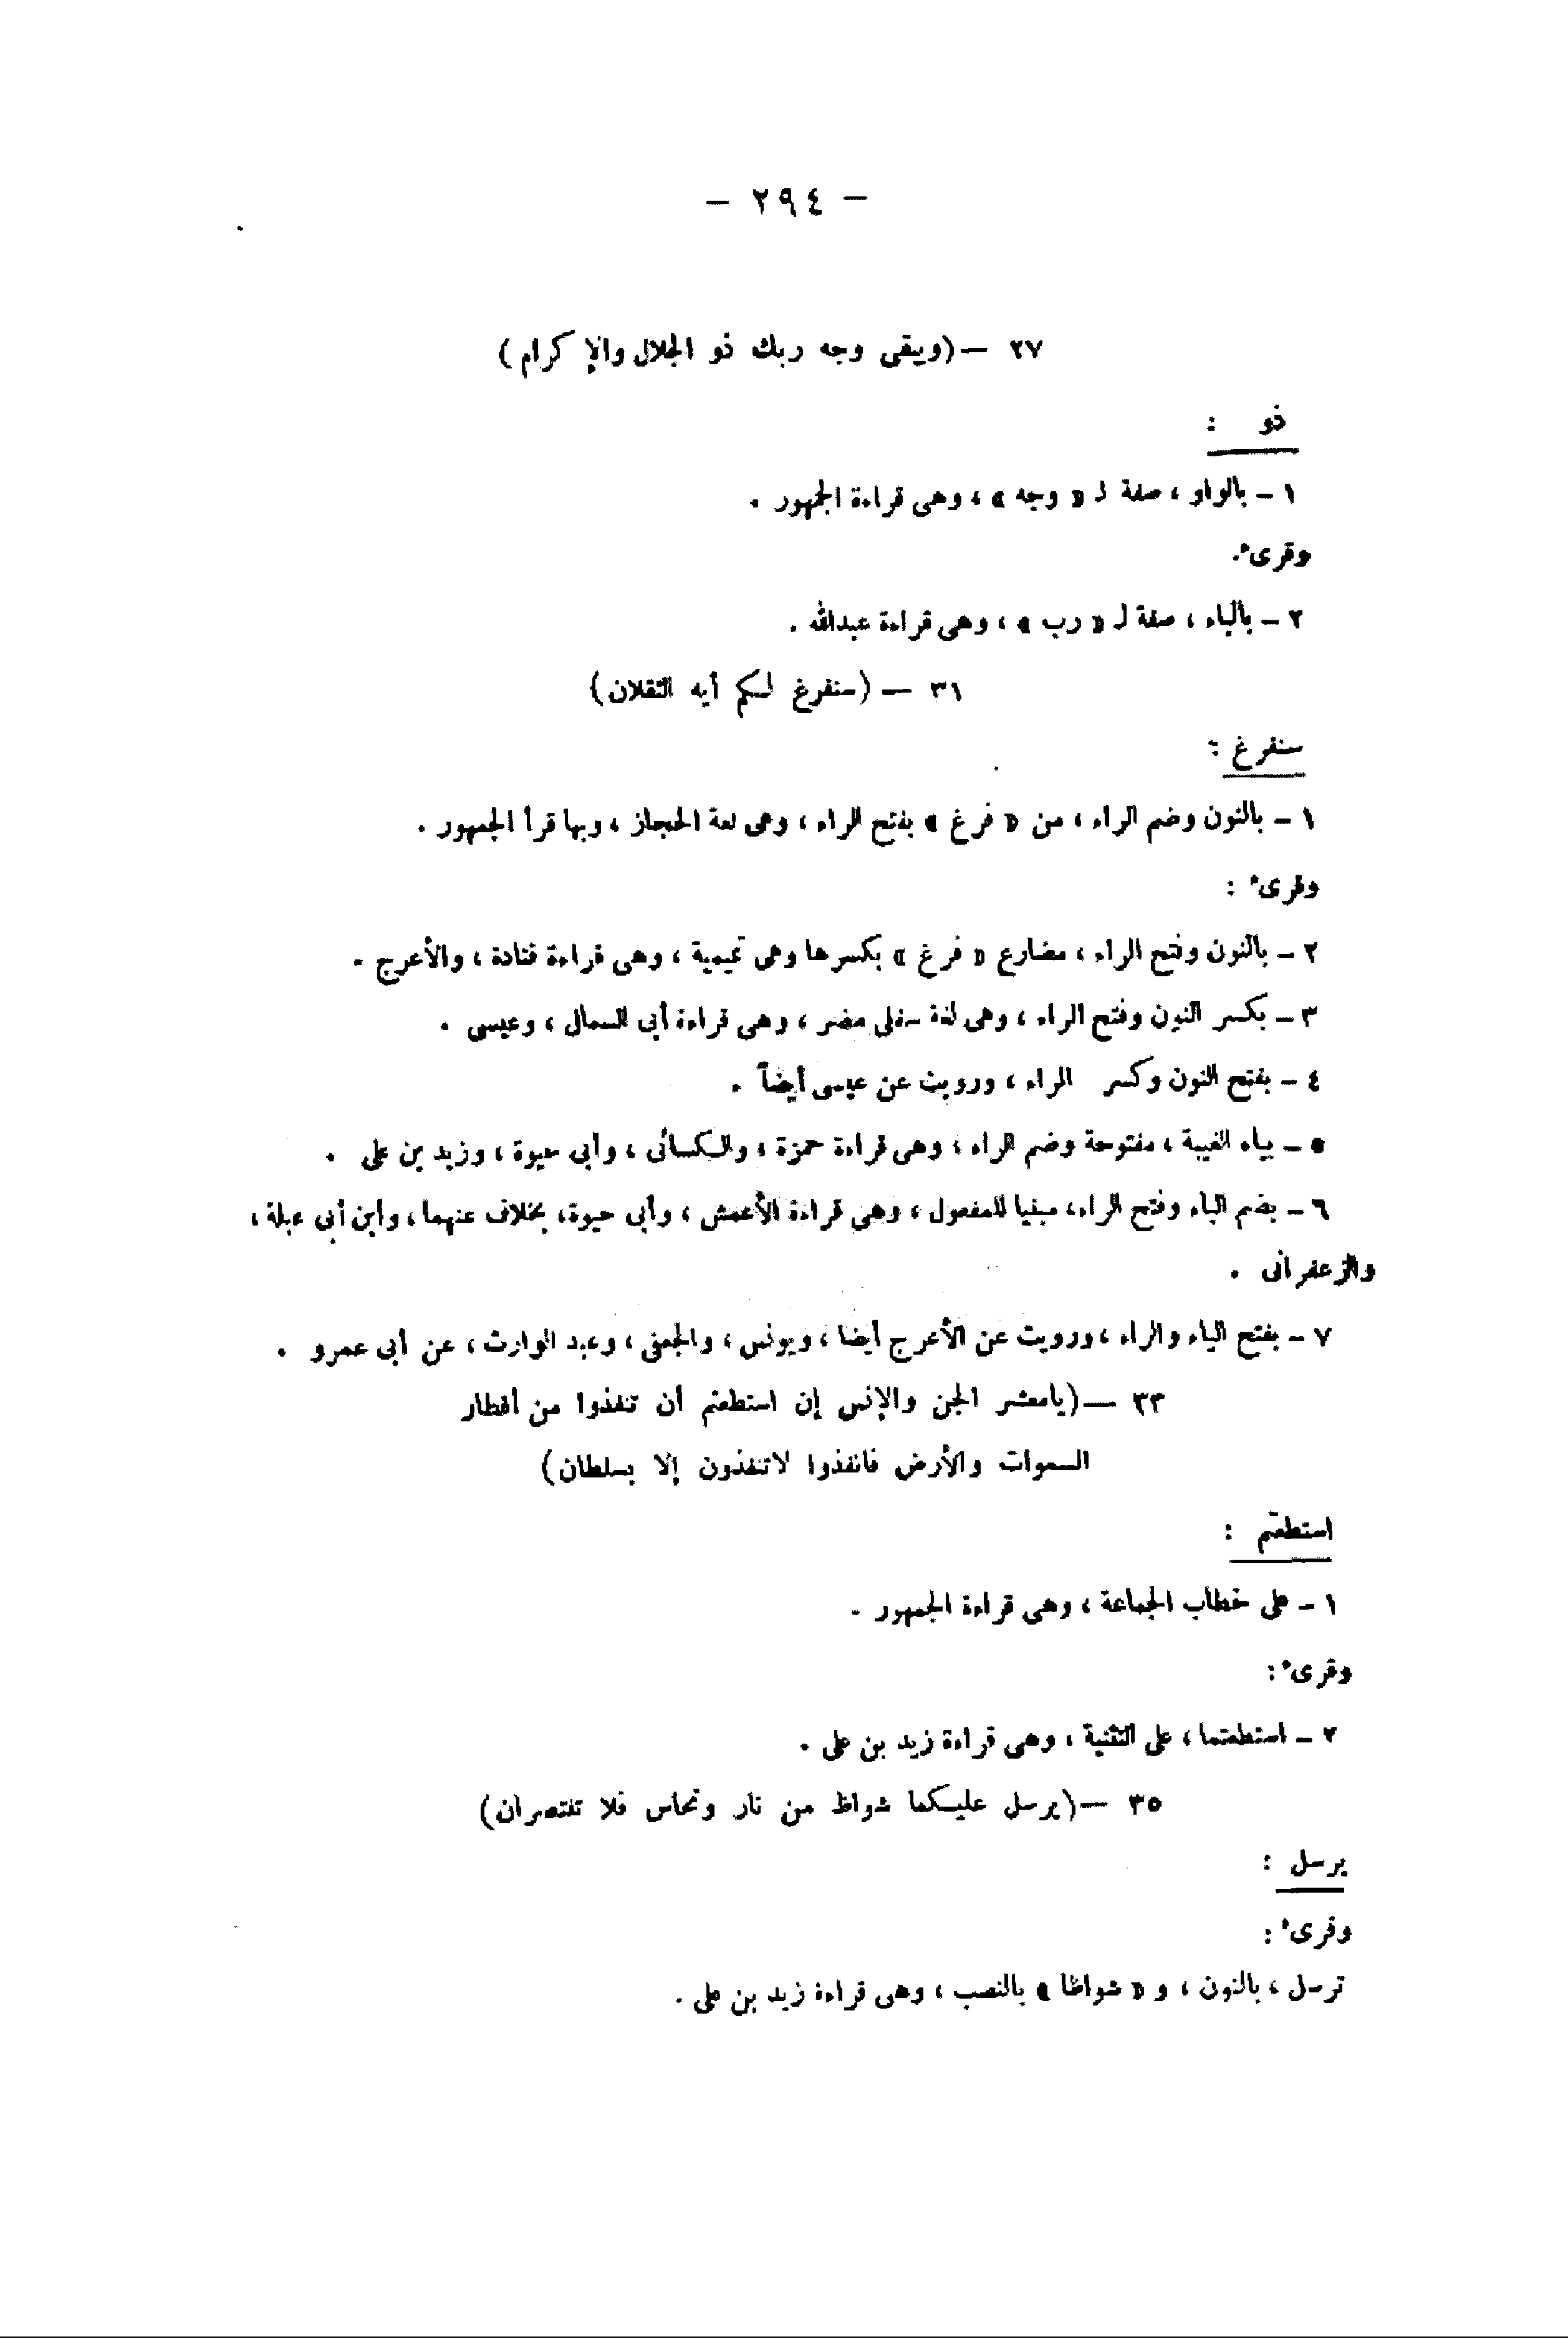 — ٢٩٤ —
٢٧ — (ويبقى وجه ربك ذو الجلال والإكرام)
ذو :
١ – بالواو ، صفة لـ « وجه » ، وهى قراءة الجمهور .
وقرىء.
٢ – بالياء ، صفة لـ « رب » ، وهى قراءة عبدالله .
٣١ — (سنفرغ لكم أيه الثقلان)
سنفرغ :
١ – بالنون وضم الراء ، من « فرغ » بفتح الراء ، وهى لغة الحجاز ، وبها قرأ الجمهور .
وقرىء :
٢ – بالنون وفتح الراء ، مضارع « فرغ » بكسرها وهى تميمية ، وهى قراءة قتادة ، والأعرج .
٣ – بكسر النون وفتح الراء ، وهى لغة سفلى مضر ، وهى قراءة أبى السمال ، وعيسى .
٤ – بفتح النون وكسر الراء ، ورويت عن عيسى أيضاً .
٥ – بياء الغيبة ، مفتوحة وضم الراء ، وهى قراءة حمزة ، والكسائى ، وأبى حيوة ، وزيد بن على .
٦ – بضم الياء وفتح الراء، مبنيا للمفعول ، وهى قراءة الأعمش ، وأبى حيوة، بخلاف عنهما، وابن أبى عبلة ،
والزعفرانى .
٧ – بفتح الياء والراء ، ورويت عن الأعرج أيضا ، ويونس ، والجعفى ، وعبد الوارث ، عن أبى عمرو .
٣٣ — (يامعشر الجن والإنس إن استطعتم أن تنفذوا من أقطار
السموات والأرض فانفذوا لاتنفذون إلا بسلطان)
استطعتم :
١ – على خطاب الجماعة ، وهى قراءة الجمهور .
وقرىء :
٢ – استطعتما ، على التثنية ، وهى قراءة زيد بن على .
٣٥ — (يرسل عليكما شواظ من نار ونحاس فلا تنتصران)
يرسل :
وقرىء :
نرسل ، بالنون ، و « شواظا » بالنصب ، وهى قراءة زيد بن على .